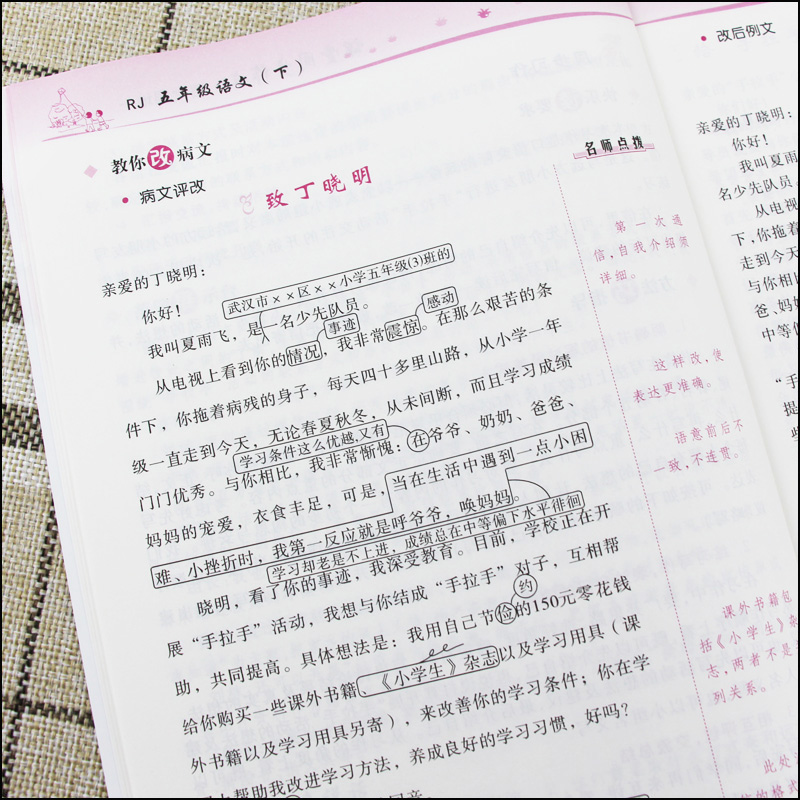 RJ 五年级语文(下)
教你改病文
• 病文评改
致丁晓明
亲爱的丁晓明:
你好!
武汉市××区××小学五年级(3)班的
我叫夏雨飞,是一名少先队员。
事迹
感动
从电视上看到你的情况,我非常震惊。在那么艰苦的条
件下,你拖着病残的身子,每天四十多里山路,从小学一年
级一直走到今天,无论春夏秋冬,从未间断,而且学习成绩
学习条件这么优越,又有
门门优秀。与你相比,我非常惭愧:在爷爷、奶奶、爸爸、
妈妈的宠爱,衣食丰足,可是,当在生活中遇到一点小困
难、小挫折时,我第一反应就是呼爷爷,唤妈妈。
学习却老是不上进,成绩总在中等偏下水平徘徊
晓明,看了你的事迹,我深受教育。目前,学校正在开
展“手拉手”活动,我想与你结成“手拉手”对子,互相帮
约
助,共同提高。具体想法是:我用自己节俭的150元零花钱
给你购买一些课外书籍、《小学生》杂志以及学习用具(课
外书籍以及学习用具另寄),来改善你的学习条件;你在学
帮助我改进学习方法,养成良好的学习习惯,好吗?
名师点拨
第一次通
信,自我介绍须
详细。
这样改,使
表达更准确。
语意前后不
一致,不连贯。
课外书籍包
括《小学生》杂
志,两者不是
列关系。
此处
的格式
• 改后例文
亲爱的丁晓明:
你好!
我叫夏雨
名少先队员,
从电视
下,你拖着
走到今天
与你相
爸、妈
中等偏
“手
提